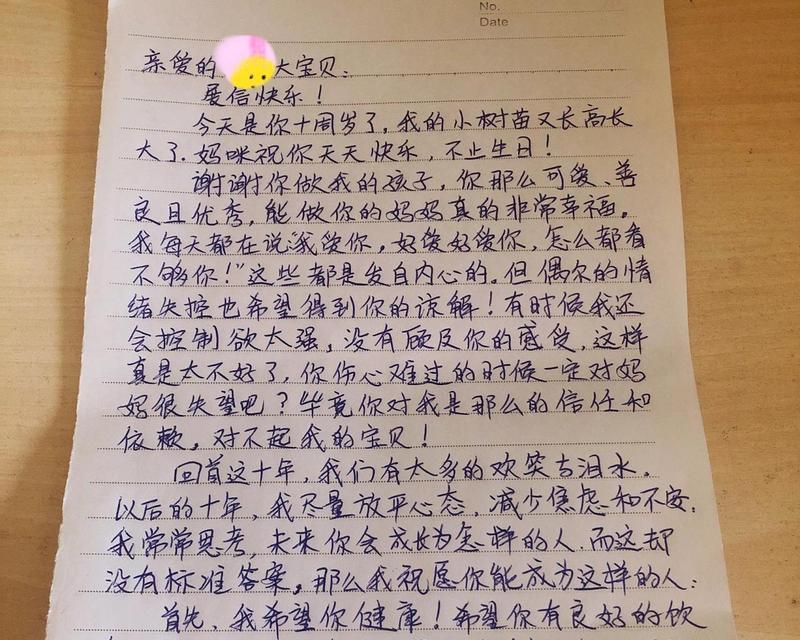 No.
Date
亲爱的 大宝贝：
展信快乐！
今天是你十周岁了，我的小树苗又长高长
大了．妈咪祝你天天快乐，不止生日！
谢谢你做我的孩子，你那么可爱、善
良且优秀，能做你的妈妈真的非常幸福。
我每天都在说"我爱你，好爱好爱你，怎么都看
不够你！"这些都是发自内心的．但偶尔的情
绪失控也希望得到你的谅解！有时候我还
会控制欲太强，没有顾及你的感受，这样
真是太不好了，你伤心难过的时候一定对妈
妈很失望吧？毕竟你对我是那么的信任和
依赖。对不起我的宝贝！
回首这十年，我们有太多的欢笑与泪水．
以后的十年，我尽量放平心态，减少焦虑和不安．
我常常思考，未来你会成长为怎样的人．而这却
没有标准答案，那么我祝愿你能成为这样的人：
首先、我希望你健康！希望你有良好的饮